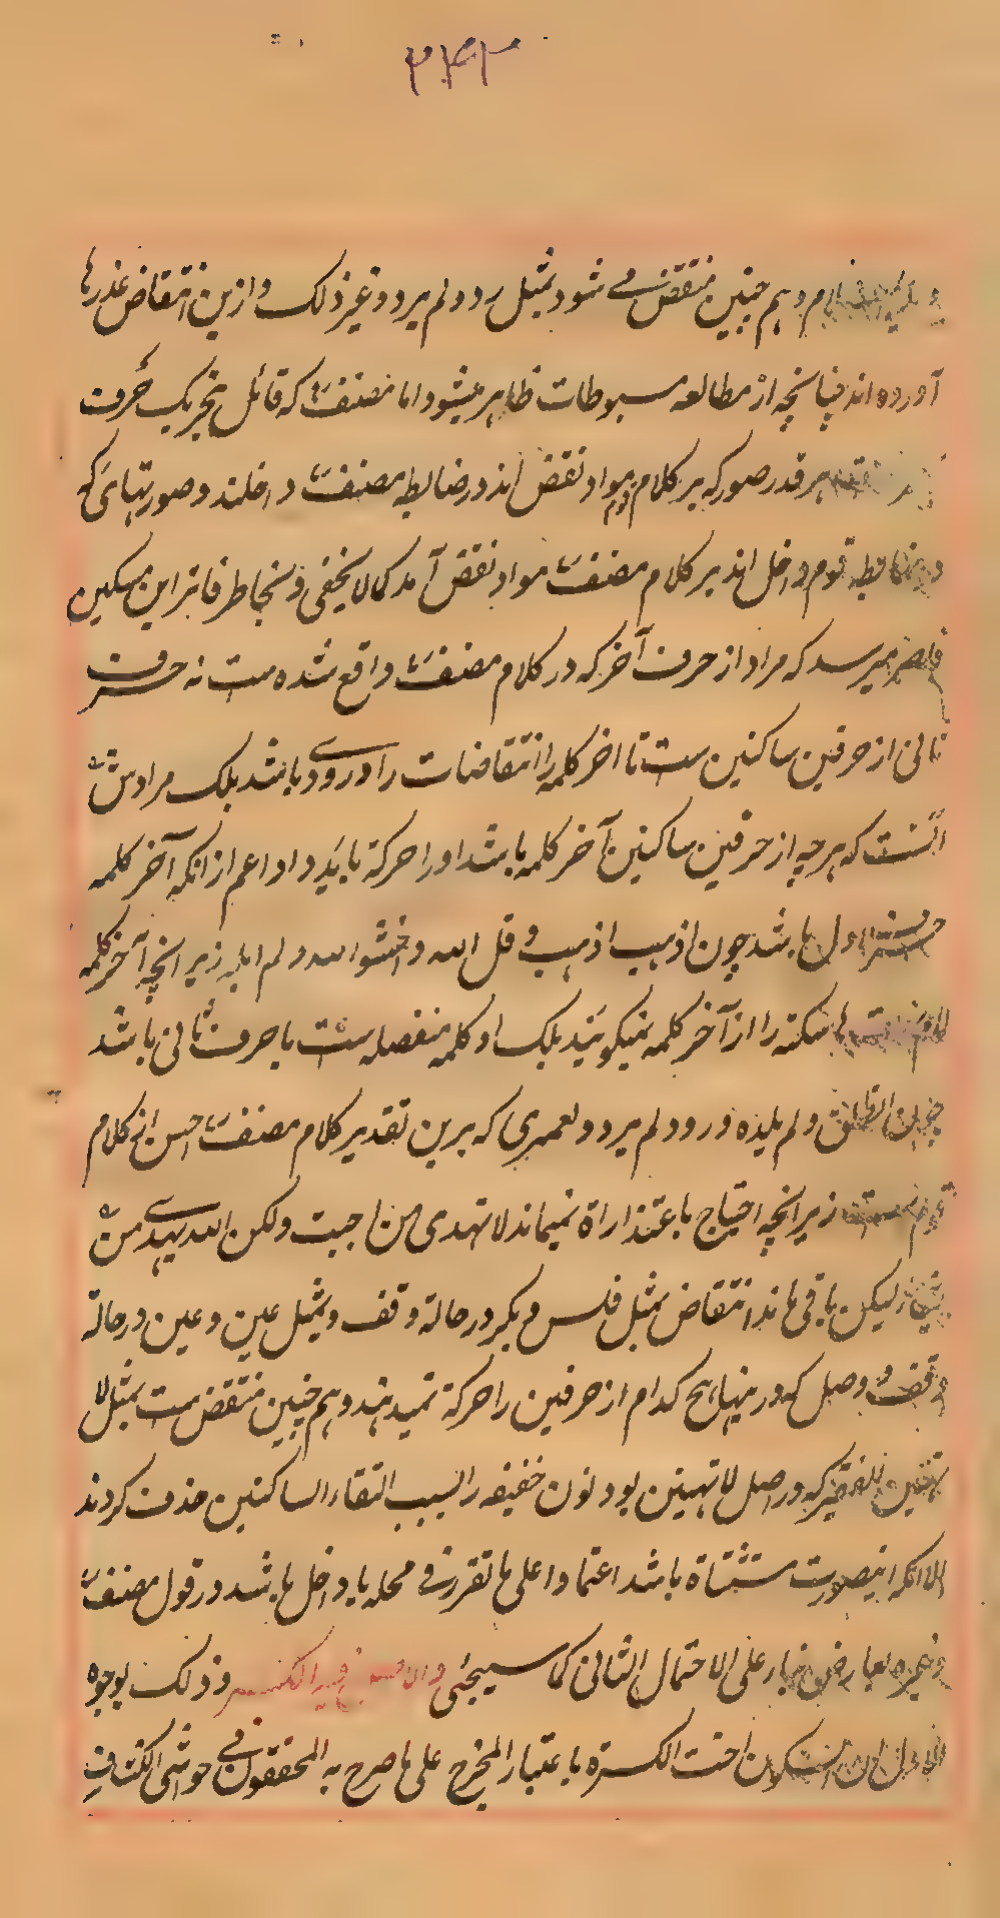 ۲۴۲
و هم چنین منتقض می شود بمثل رد و لم یرد و غیر ذلک و ازین انتقاض عذرها
آورده اند چنانچه از مطالعه مبسوطات ظاهر میشود اما مصنف که قائل بتحریک حرف
هر قدر صور که بر کلام قوم مواد نقض اند در ضابطه مصنف داخلند و صورتهای که
در ضابطه قوم داخل اند بر کلام مصنف مواد نقض آمد کما لا یخفی و بخاطر فاتر این مسکین
میرسد که مراد از حرف آخر که در کلام مصنف واقع شده ست نه حرف
ثانی از حرفین ساکنین ست تا اخر کلمه را انتقاضات را ورودی باشد بلک مرادش
آنست که هر چه از حرفین ساکنین آخر کلمه باشد او را حرکة باید داد اعم از انکه آخر کلمه
حرف اول باشد چون اذهب اذهب و قل الله و اخشوا الله و لم ابله زیرا نچه آخر کلمه
سکته را از آخر کلمه نمیگویند بلک او کلمه منفصله ست یا حرف ثانی باشد
چون انطلق و لم یلده و رد و لم یرد و لعمری که برین تقدیر کلام مصنف احسن از کلام
قوم ست زیرا نچه احتیاج باعتذاراة نمیماند لا تهدی من احببت ولکن الله یهدی من
یشاء لیکن باقی ماند انتقاض بمثل فلس و بکر در حالة وقف و بمثل عین و عین در حالة
وقف و وصل که درینها هیچ کدام از حرفین را حرکة نمیدهند و هم چنین منتقض ست بمثل لا
تهین الفقیر که در اصل لا تهینن بود نون خفیفه را بسبب التقاء الساکنین حذف کردند
الا انکه اینصورت مستثناة باشد اعتمادا علی ما تقرر فی محله یا داخل باشد در قول مصنف
و غیره لعارض بناء علی الاحتمال الثانی کما سیجئی والاصل فیه الکسر و ذلک بوجوه
الاول ان السکون اخت الکسرة باعتبار المخرج علی ما صرح به المحققون فی حواشی الکشاف